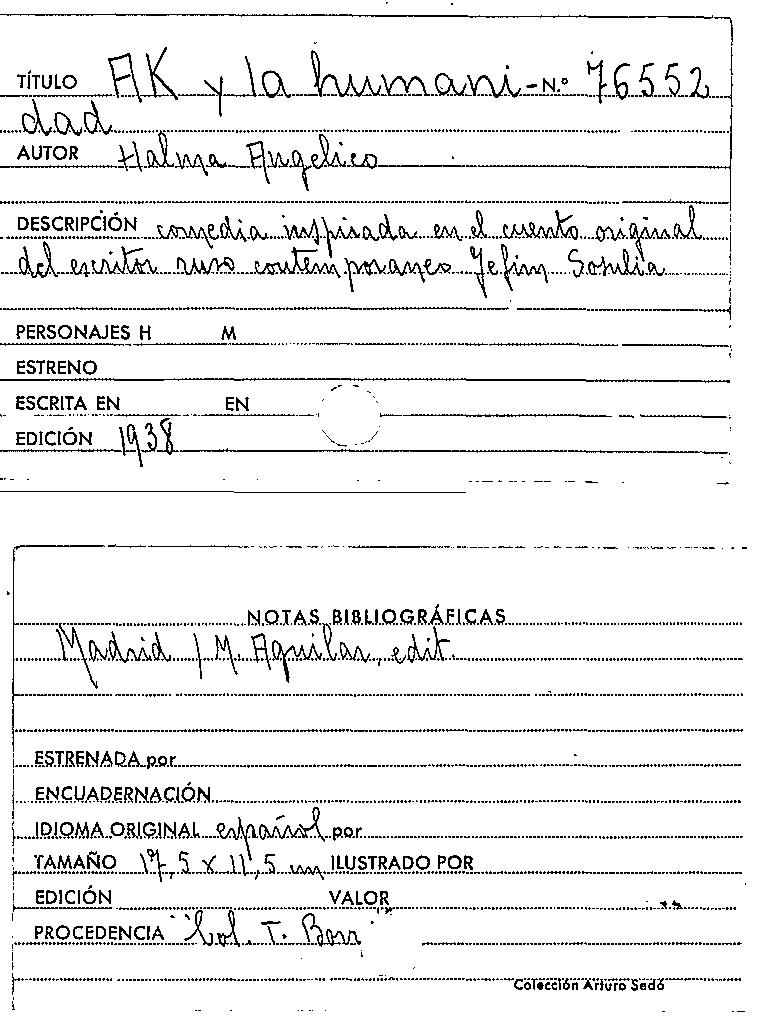 TÍTULO AK y la humani- N.º 76552
dad
AUTOR Halma Angelico
DESCRIPCIÓN comedia inspirada en el cuento original
del escritor ruso contemporaneo Jefim Sosulia
PERSONAJES H M
ESTRENO
ESCRITA EN EN
EDICIÓN 1938
NOTAS BIBLIOGRÁFICAS
Madrid / M. Aguilar, edit.
ESTRENADA por
ENCUADERNACIÓN
IDIOMA ORIGINAL español por
TAMAÑO 17,5 x 11,5 cm ILUSTRADO POR
EDICIÓN VALOR
PROCEDENCIA "Col. T. Borr"
Colección Arturo Sedó